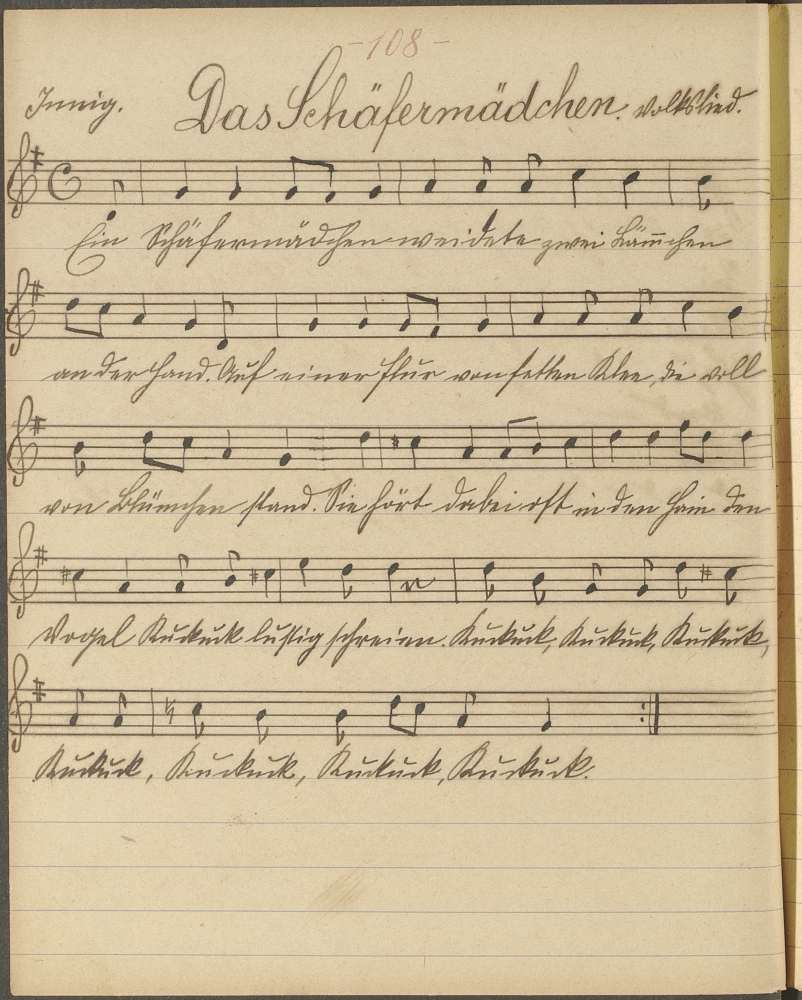 -108-
Innig. Das Schäfermädchen. Volkslied.
Ein Schäfermädchen weidete zwei Läm̄chen
an der Hand. Auf einer Flur von fetten Klee, die voll
von Blümchen stand. Sie hört dabei oft in den Hain den
Vogel Kuckuck lustig schreien. Kuckuck, Kuckuck, Kuckuck,
Kuckuck, Kuckuck, Kuckuck, Kuckuck.